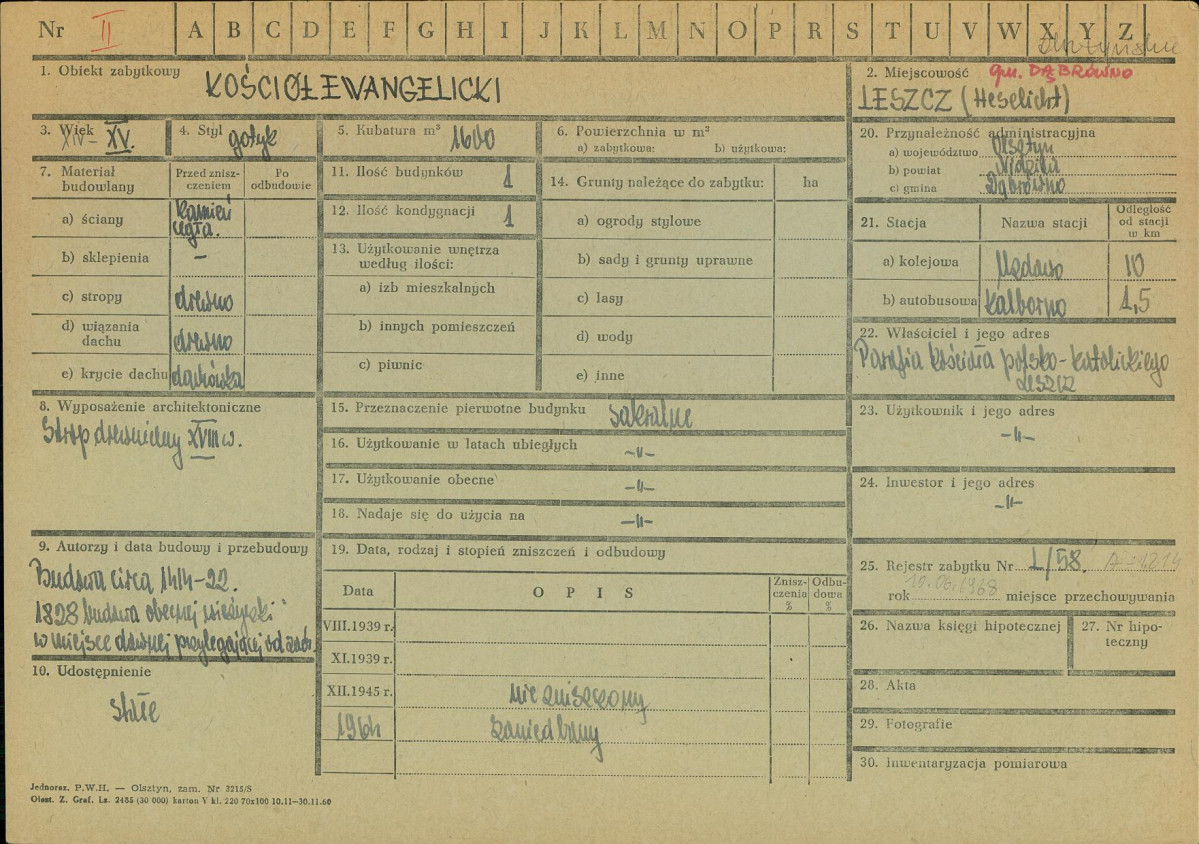 Nr II A B C D E F G H I J K L M N O P R S T U V W X Y Z
olsztyńskie
1. Obiekt zabytkowy KOŚCIÓŁ EWANGELICKI
2. Miejscowość gm. DĄBRÓWNO
LESZCZ (Heselicht)
3. Wiek XIV – XV.
4. Styl gotyk
5. Kubatura m³ 1600
6. Powierzchnia w m²
a) zabytkowa: b) użytkowa:
7. Materiał budowlany
Przed zniszczeniem
Po odbudowie
a) ściany kamień cegła.
b) sklepienia –
c) stropy drewno
d) wiązania dachu drewno
e) krycie dachu dachówka
8. Wyposażenie architektoniczne
Strop drewniany XVIII w.
9. Autorzy i data budowy i przebudowy
Budowa circa 1414–22.
1828 budowa obecnej wieżyczki
w miejsce dawnej przylegającej od zach.
10. Udostępnienie
stałe
11. Ilość budynków 1
12. Ilość kondygnacji 1
13. Użytkowanie wnętrza według ilości:
a) izb mieszkalnych
b) innych pomieszczeń
c) piwnic
14. Grunty należące do zabytku: ha
a) ogrody stylowe
b) sady i grunty uprawne
c) lasy
d) wody
e) inne
15. Przeznaczenie pierwotne budynku sakralne
16. Użytkowanie w latach ubiegłych –"–
17. Użytkowanie obecne –"–
18. Nadaje się do użycia na –"–
19. Data, rodzaj i stopień zniszczeń i odbudowy
Data OPIS Zniszczenia % Odbudowa %
VIII.1939 r.
XI.1939 r.
XII.1945 r. nie zniszczony
1964 zaniedbany
20. Przynależność administracyjna
a) województwo Olsztyn
b) powiat Nidzica
c) gmina Dąbrówno
21. Stacja Nazwa stacji Odległość od stacji w km
a) kolejowa 10
b) autobusowa Kalborno 1,5
22. Właściciel i jego adres
Parafia kościoła polsko-katolickiego
Leszcz
23. Użytkownik i jego adres
–"–
24. Inwestor i jego adres
–"–
25. Rejestr zabytku Nr L/58. A-1214
rok 10.06.1968 miejsce przechowywania
26. Nazwa księgi hipotecznej
27. Nr hipoteczny
28. Akta
29. Fotografie
30. Inwentaryzacja pomiarowa
Jednoraz. P.W.H. — Olsztyn, zam. Nr 3215/S
Olszt. Z. Graf. Lz. 2485 (30 000) karton V kl. 220 70x100 10.11—30.11.60